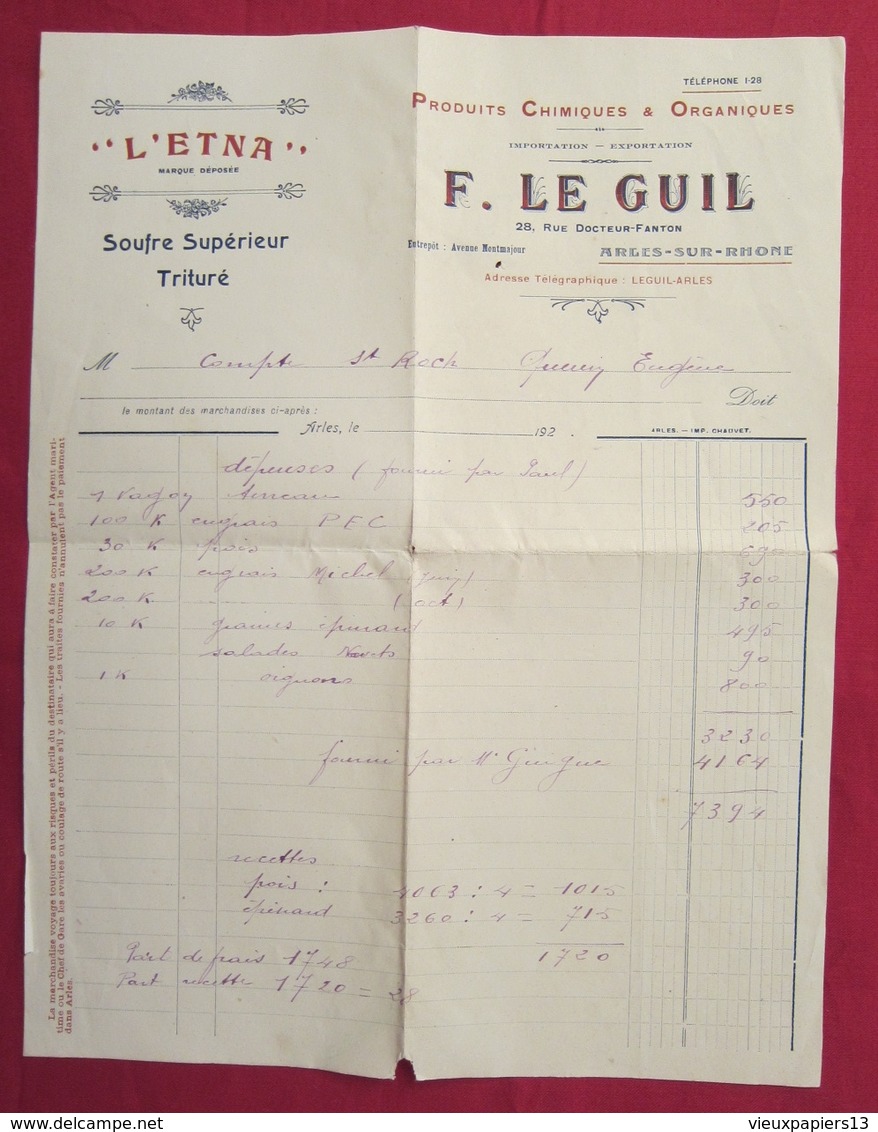 TÉLÉPHONE 1-28
" L'ETNA "
MARQUE DÉPOSÉE
Soufre Supérieur
Trituré
PRODUITS CHIMIQUES & ORGANIQUES
IMPORTATION — EXPORTATION
F. LE GUIL
28, RUE DOCTEUR-FANTON
Entrepôt : Avenue Montmajour
ARLES-SUR-RHONE
Adresse Télégraphique : LEGUIL-ARLES
M Compte St Roch Eugène
Doit
le montant des marchandises ci-après :
Arles, le 192
ARLES. — IMP. CHAUVET.
dépenses (fourni par Paul)
1 550
100 K engrais P E C 205
30 K pois 690
200 K engrais Michel (juin) 300
200 K (oct) 300
10 K graines épinard 495
salades 90
1 K oignons 800
3230
fourni par Mr Guigue 4164
7394
recettes
pois : 4063 : 4 = 1015
épinard 3260 : 4 = 715
1720
Part de frais 1748
Part recette 1720 = 28
La marchandise voyage toujours aux risques et périls du destinataire qui aura à faire constater par l'Agent mari-
time ou le Chef de Gare les avaries ou coulage de route s'il y a lieu. - Les traites fournies n'annulent pas le paiement
dans Arles.
delcampe.net
vieuxpapiers13